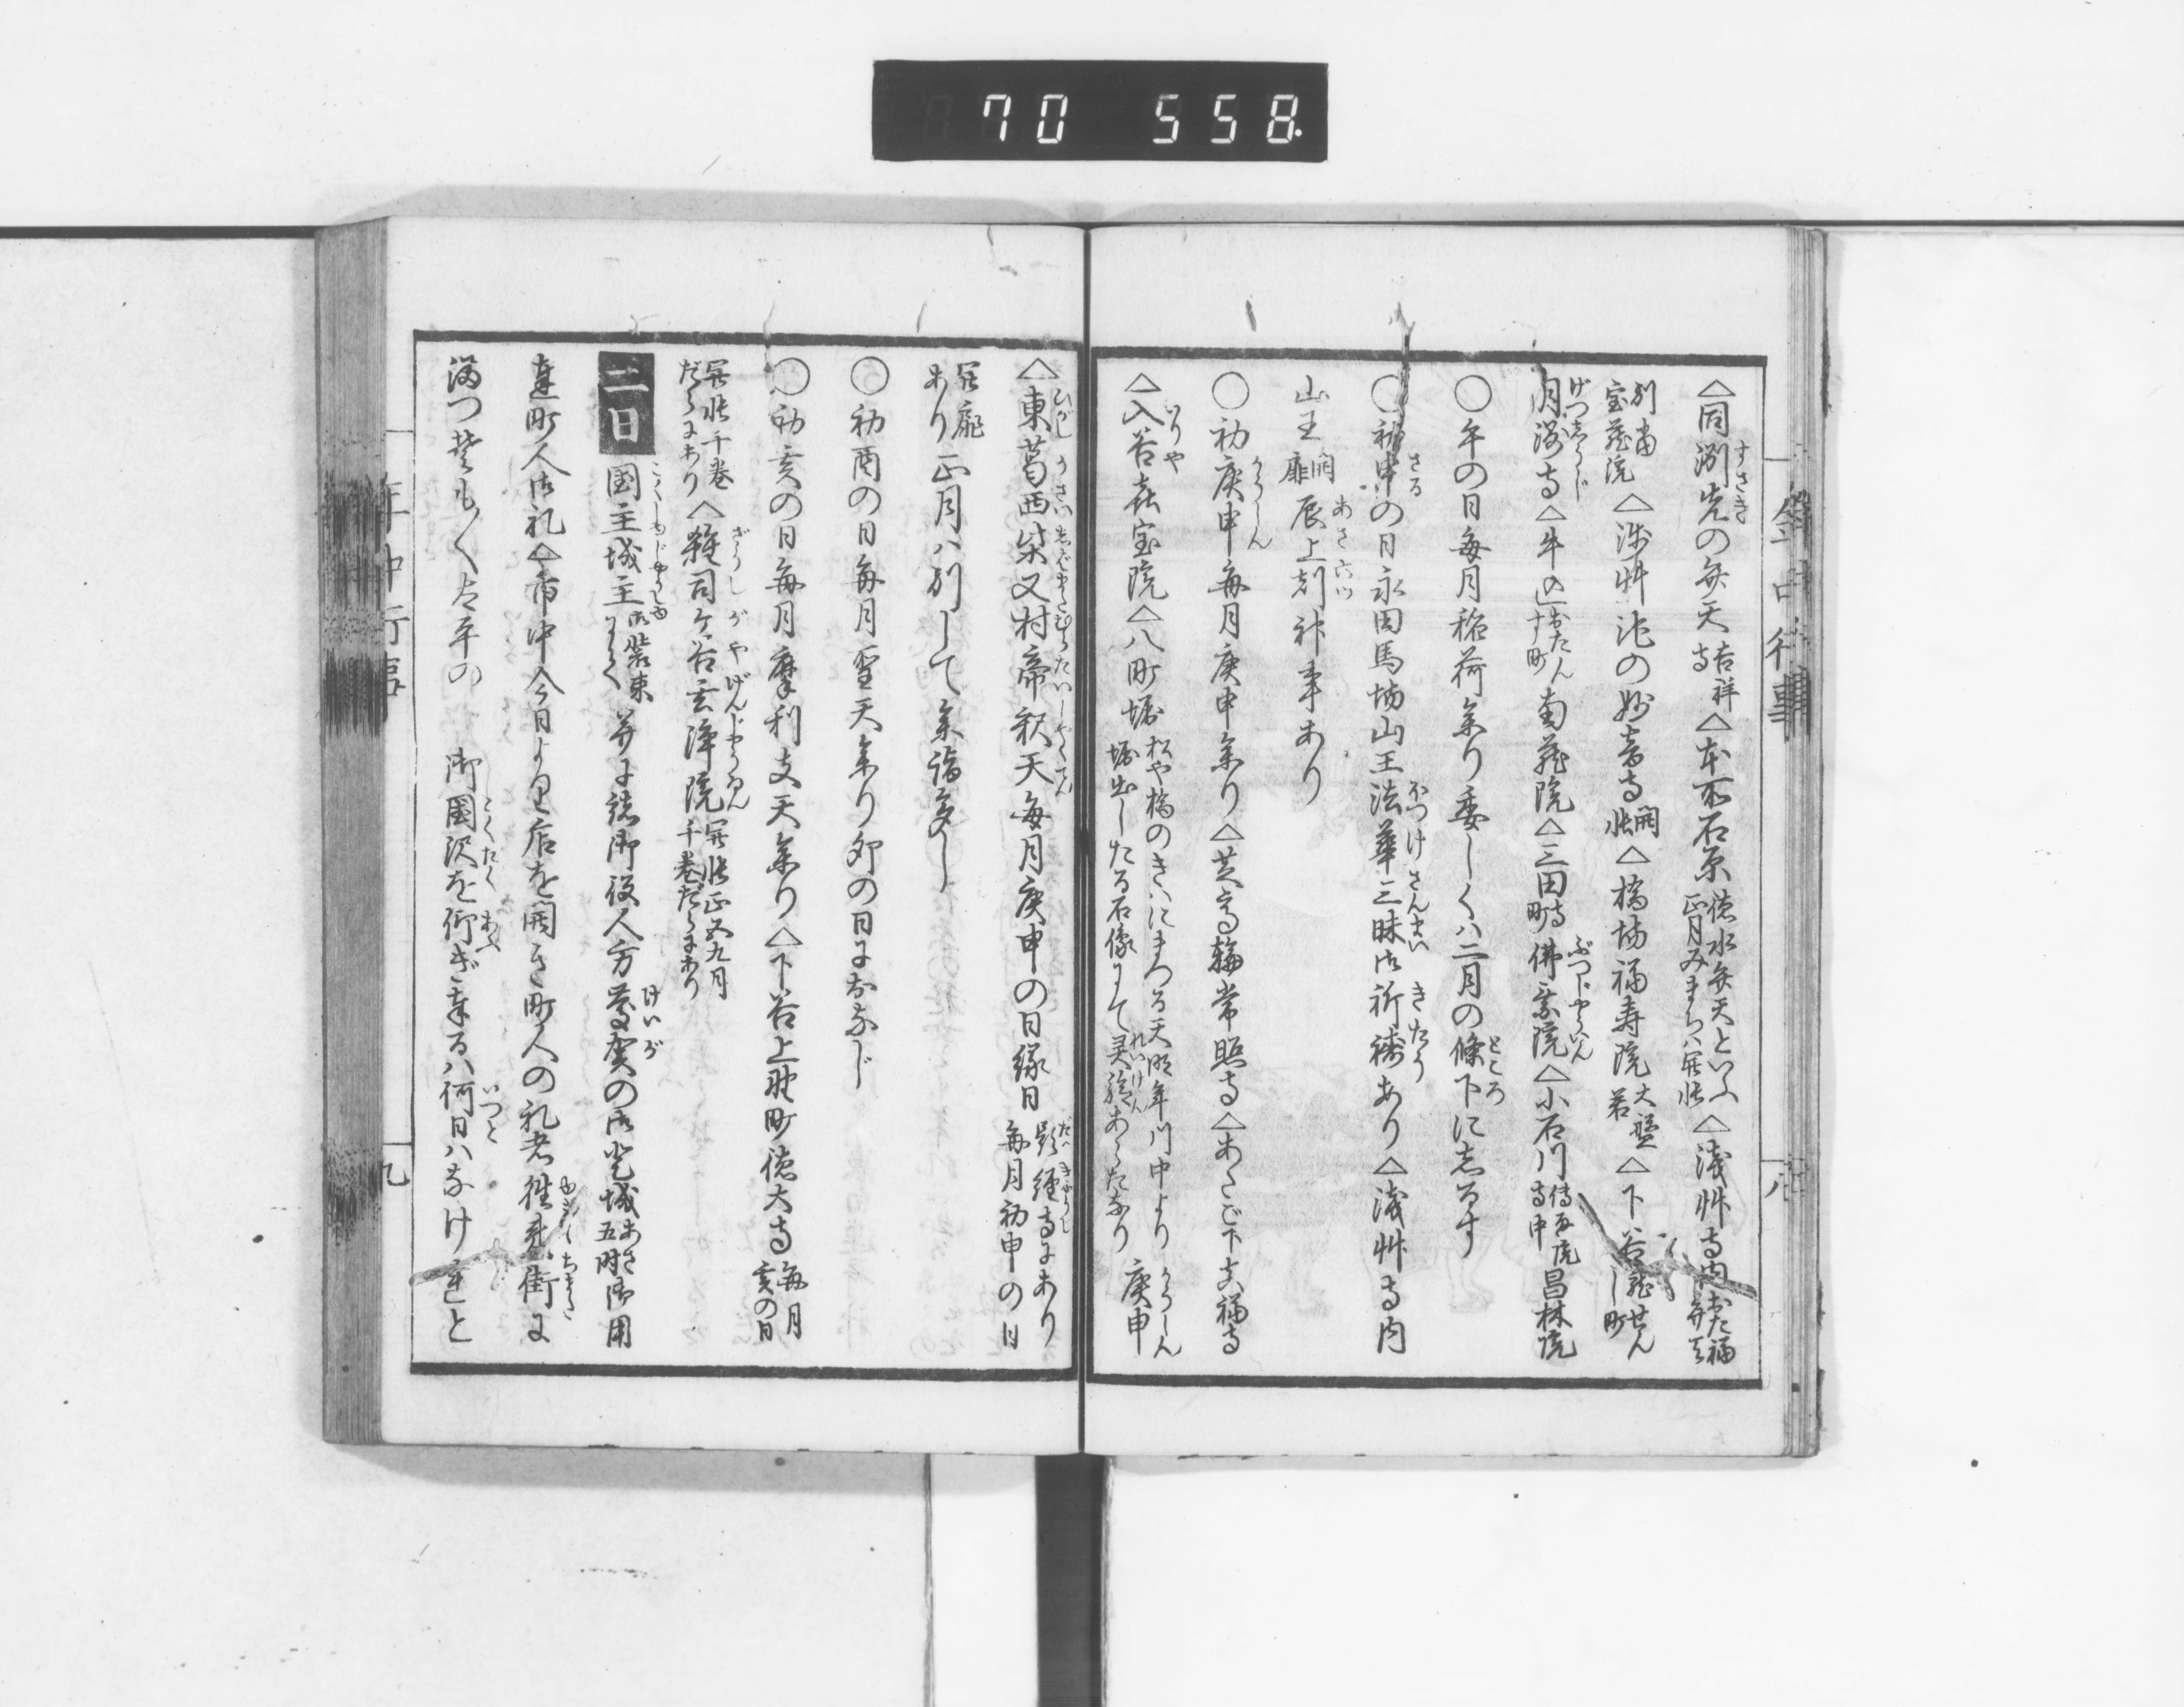 70 558
年中行事
八
△同洲先の弁天吉祥寺△本所石原徳水弁天といふ正月みまちハ開帳△浅艸寺内おた福弁天
別当宝蔵院△浅艸沱の妙音寺開帳△橋場福寿院大聖若△下谷龍せんし町
△牛込おたん十町南蔵院△三田寺町佛乗院△小石川傳通院寺中昌林院
○午の日毎月稲荷参り委しくハ二月の條下に志るす
○初申の日永田馬場山王法華三昧御祈祷あり△浅艸寺内
山王開扉辰上刻神事あり
○初庚申毎月庚申参り△芝高輪常照寺△あたご下真福寺
△入谷喜宝院△八町堀松や橋のきハにまつる天明年川中より堀出したる石像にて灵験あらたなり庚申
△東葛西柴又村帝釈天毎月庚申の日縁日題経寺にあり毎月初申の日
開扉あり正月ハ別して参詣多し
○初酉の日毎月聖天参り卯の日におなじ
○初亥の日毎月摩利支天参り△下谷上野町徳大寺毎月亥の日
開帳千巻だらにあり△雑司ヶ谷玄浄院開帳正五九月千巻だらにあり
二日 国主城主御装束并に諸御役人方慶賀の御登城あさ五時御用
達町人御礼△市中今日より店を開き町人の礼者往来街に
満つ 太平の 御國沢を仰ぎ奉るハ何日ハなけれと
年中行事
九